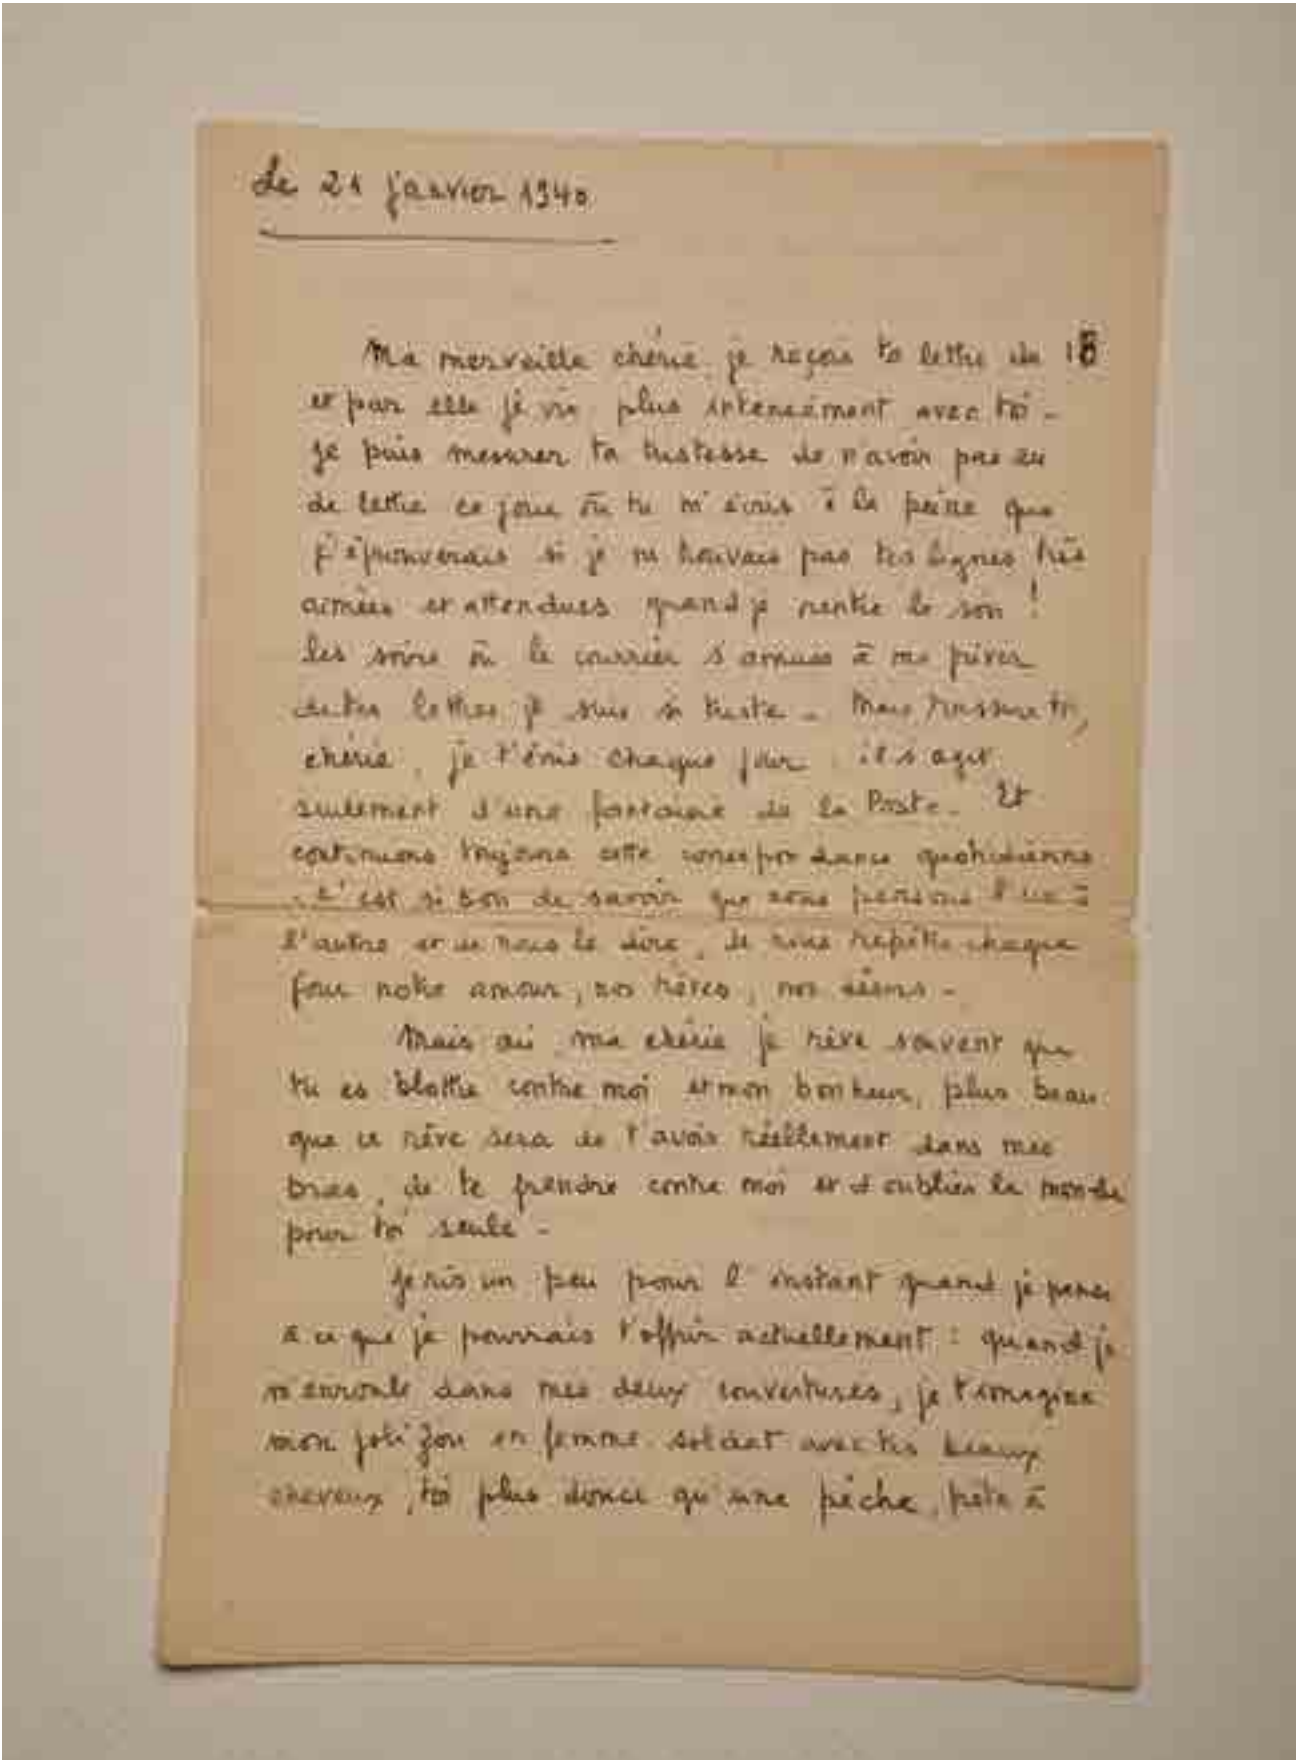 Le 21 janvier 1940
Ma merveille chérie, je reçois ta lettre du 18
et par elle je vis plus intensément avec toi -
Je puis mesurer ta tristesse de n'avoir pas eu
de lettre ce jour où tu m'écris à la peine que
j'éprouverais si je ne trouvais pas tes lignes très
aimées et attendues quand je rentre le soir !
les soirs où le courrier s'amuse à me priver
de tes lettres je suis si triste - Mais rassure toi,
chérie, je t'écris chaque jour, il s'agit
seulement d'une fantaisie de la Poste - Et
continuons toujours cette correspondance quotidienne
c'est si bon de savoir que nous pensons l'un à
l'autre et de nous le dire, de nous répéter chaque
jour notre amour, nos rêves, nos désirs -
Mais oui, ma chérie je rêve souvent que
tu es blottie contre moi et mon bonheur, plus beau
que ce rêve sera de t'avoir réellement dans mes
bras, de te prendre contre moi et d'oublier le monde
pour toi seule -
Je ris un peu pour l'instant quand je pense
à ce que je pourrais t'offrir actuellement : quand je
m'enroule dans mes deux couvertures, je t'imagine
mon joli Zou en femme soldat avec tes beaux
cheveux, toi plus douce qu'une pêche, prête à